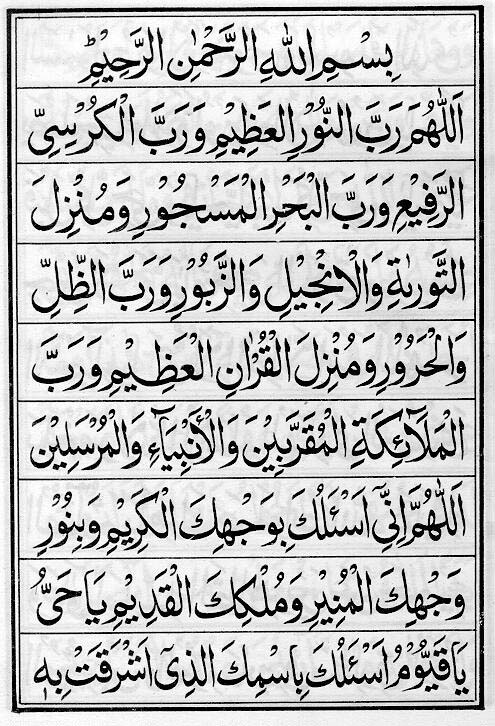 بِسْمِ اللهِ الرَّحْمٰنِ الرَّحِيْمِ
اَللّٰهُمَّ رَبَّ النُّوْرِ الْعَظِيْمِ وَرَبَّ الْكُرْسِيِّ
الرَّفِيْعِ وَرَبَّ الْبَحْرِ الْمَسْجُوْرِ وَمُنْزِلَ
التَّوْرٰىةِ وَالْاِنْجِيْلِ وَالزَّبُوْرِ وَرَبَّ الظِّلِّ
وَالْحَرُوْرِ وَمُنْزِلَ الْقُرْاٰنِ الْعَظِيْمِ وَرَبَّ
الْمَلَآئِكَةِ الْمُقَرَّبِيْنَ وَالْأَنْبِيَآءِ وَالْمُرْسَلِيْنَ
اَللّٰهُمَّ اِنِّيْٓ اَسْئَلُكَ بِوَجْهِكَ الْكَرِيْمِ وَبِنُوْرِ
وَجْهِكَ الْمُنِيْرِ وَمُلْكِكَ الْقَدِيْمِ يَا حَيُّ
يَا قَيُّوْمُ اَسْئَلُكَ بِاسْمِكَ الَّذِىْ اَشْرَقَتْ بِهٖ